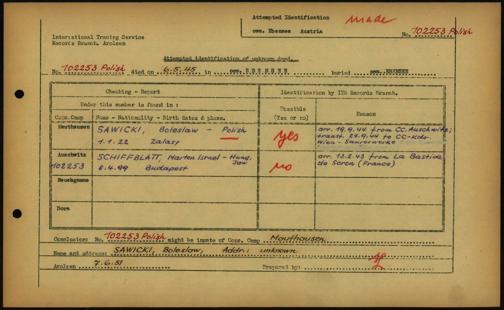 Attempted Identification
made
cem. Ebensee Austria
No. 102253 Polish
International Tracing Service
Records Branch, Arolsen
Attempted identification of unknown dead.
No. 102253 Polish died on 6.5.45 in cem. EBENSEE buried cem. EBENSEE
Checking - Report
Identification by ITS Records Branch.
Under this number is found in:
Conc.Camp
Name - Nationality - Birth dates & place.
Possible
(Yes or no)
Reason
Mauthausen
SAWICKI, Boleslaw - Polish
1.1.22 Zalasy
yes
arr. 19.9.44 from CC. Auschwitz;
transf. 29.9.44 to CC-Kdo.
Wien -
Auschwitz
102253
SCHIFFBLATT, Marton Israel - Hung.
Jew
6.4.99 Budapest
no
arr. 13.2.43 from La Bastide
de Seron (France)
Neuengamme
Dora
Conclusion: No. 102253 Polish might be inmate of Conc. Camp Mauthausen
Name and address: SAWICKI, Boleslaw, Addr.: unknown
Arolsen 7.6.51 Prepared by: